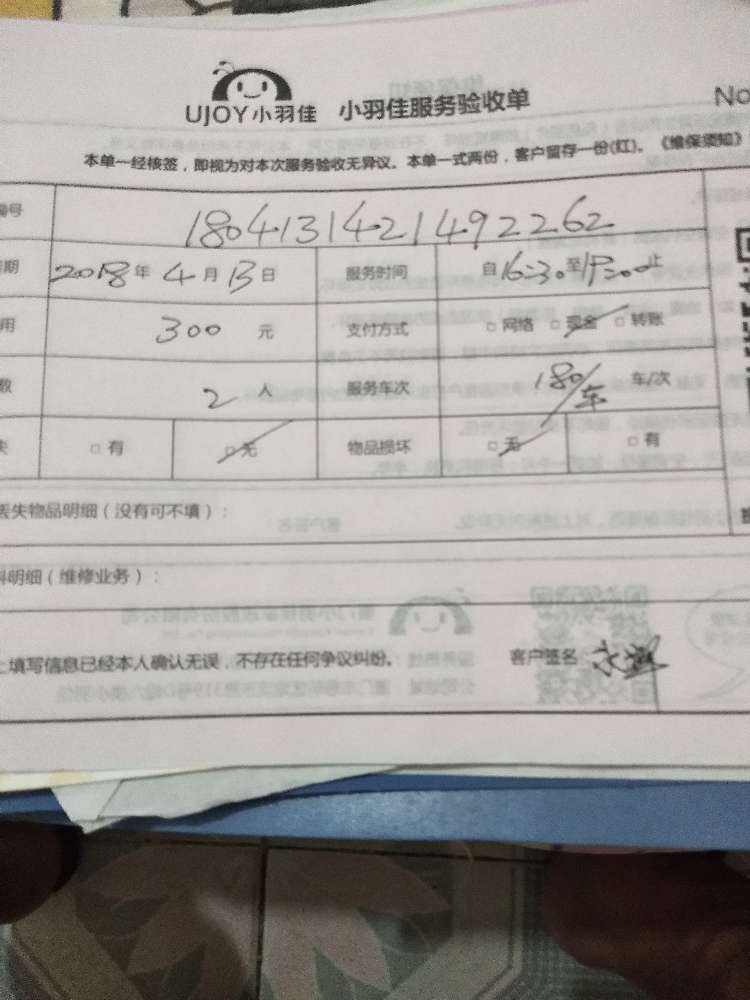 UJOY小羽佳 小羽佳服务验收单 No
本单一经核签，即视为对本次服务验收无异议。本单一式两份，客户留存一份(红)。《维保须知》
编号 1804131421492262
期 2018年4月13日 服务时间 自16:30至19:00止
用 300 元 支付方式 □网络 □现金 □转账
数 2 人 服务车次 180/车 车/次
失 □有 □无 物品损坏 □无 □有
丢失物品明细（没有可不填）：
料明细（维修业务）：
上填写信息已经本人确认无误，不存在任何争议纠纷。 客户签名